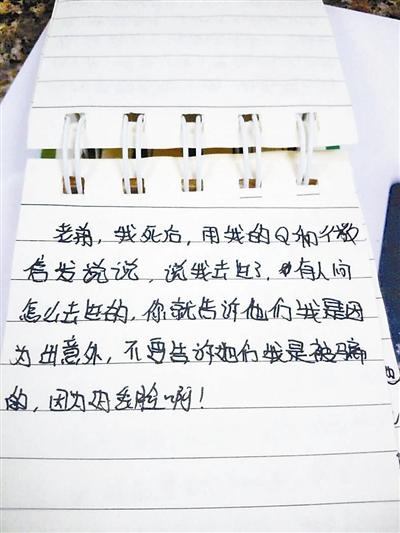 老弟，我死后，用我的Q和微
信发说说，说我去世了，有人问
怎么去世的，你就告诉他们我是因
为出意外，不要告诉她们我是被骗
的，因为丢脸啊！